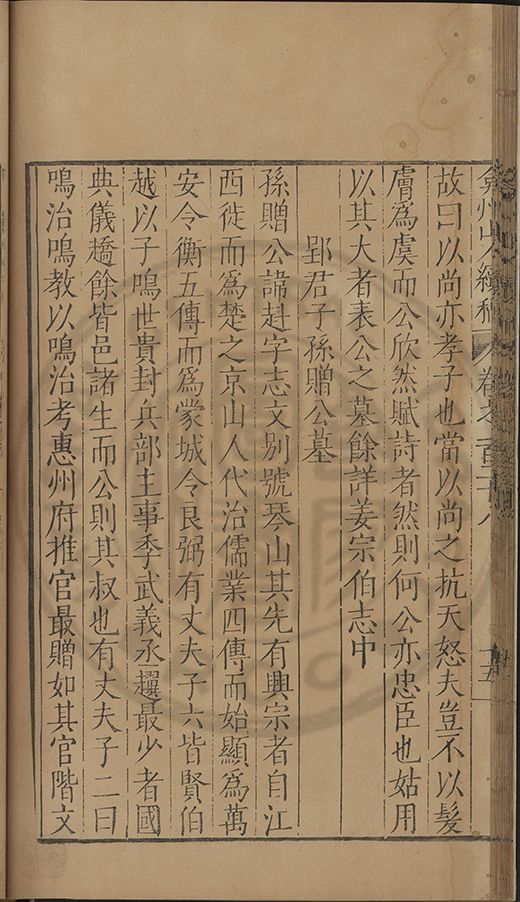 弇州山人續稿 卷之一百二十八 十五
故曰以尚亦孝子也當以尚之抗天怒夫豈不以髮
膚爲虞而公欣然賦詩者然則何公亦忠臣也姑用
以其大者表公之墓餘詳姜宗伯志中
郢君子孫贈公墓
孫贈公諱赶字志文別號琴山其先有興宗者自江
西徙而爲楚之京山人代治儒業四傳而始顯爲萬
安令衡五傳而爲蒙城令良弼有丈夫子六皆賢伯
越以子鳴世貴封兵部主事季武義丞趯最少者國
典儀趫餘皆邑諸生而公則其叔也有丈夫子二曰
鳴治鳴教以鳴治考惠州府推官最贈如其官階文